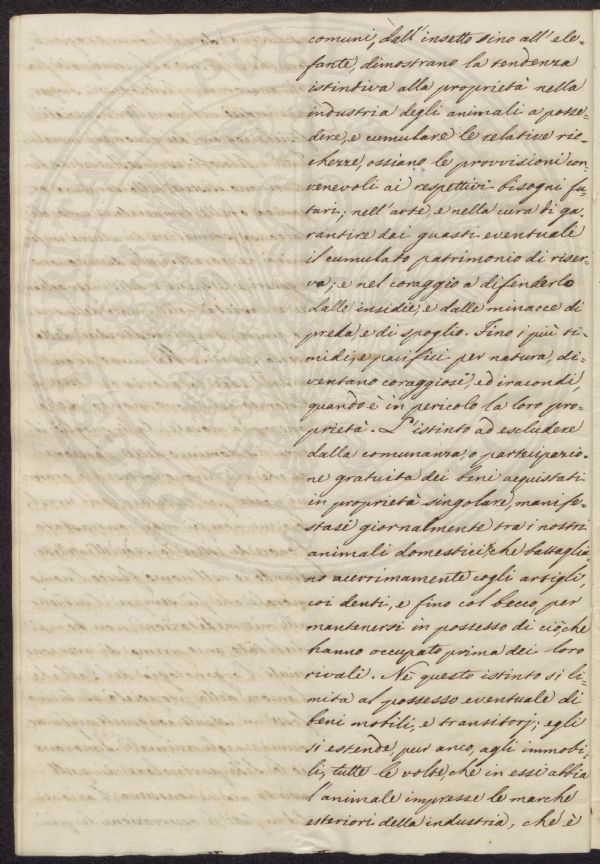 comuni, dall'insetto sino all'ele=
fante, dimostrano la tendenza
istintiva alla proprietà nella
industria degli animali a posse=
dere, e cumulare le relative ric=
chezze, ossiano le provvisioni con=
venevoli ai respettivi bisogni fu=
turi; nell'arte, e nella cura di ga=
rantire dai guasti eventuali
il cumulato patrimonio di riser=
va; e nel coraggio a difenderlo
dalle insidie, e dalle minacce di
preda, e di spoglio. Fino i più ti=
midi, e pacifici per natura, di=
ventano coraggiosi, ed iracondi,
quando è in pericolo la loro pro=
prietà. L'istinto ad escludere
dalla comunanza, o partecipazio=
ne gratuita dei beni acquistati
in proprietà singolare, manife=
stasi giornalmente tra i nostri
animali domestici, che battaglia=
no acerrimamente cogli artigli,
coi denti, e fino col becco, per
mantenersi in possesso di ciò, che
hanno occupato prima dei loro
rivali. Nè questo istinto si li=
mita al possesso eventuale di
beni mobili, e transitorj; egli
si estende, pur anco, agli immobi=
li, tutte le volte, che in essi abbia
l'animale impresse le marche
esteriori della industria, ch'è